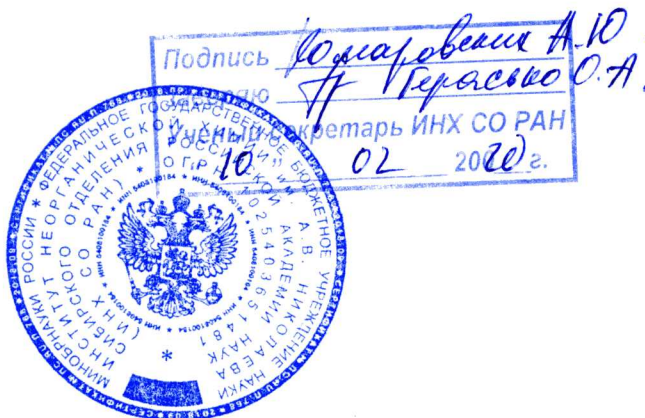 Подпись Комаровских А.Ю
заверяю Герасько О.А.
Ученый секретарь ИНХ СО РАН
10 02 2020 г.
МИНОБРНАУКИ РОССИИ * ФЕДЕРАЛЬНОЕ ГОСУДАРСТВЕННОЕ БЮДЖЕТНОЕ УЧРЕЖДЕНИЕ НАУКИ
ИНСТИТУТ НЕОРГАНИЧЕСКОЙ ХИМИИ им. А.В. НИКОЛАЕВА
СИБИРСКОГО ОТДЕЛЕНИЯ РОССИЙСКОЙ АКАДЕМИИ НАУК
(ИНХ СО РАН) * ОГРН 1025403651481
* ИНН 5408100184 * ИНН 5408100184 *